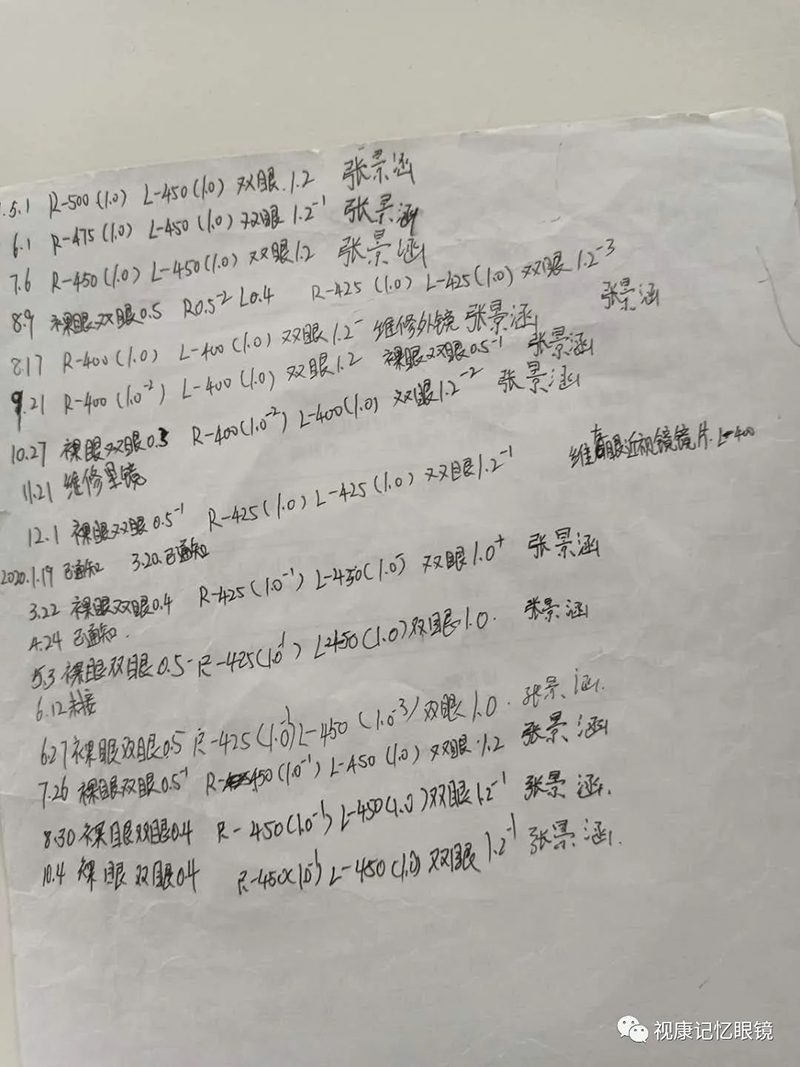 .5.1 R-500(1.0) L-450(1.0) 双眼.1.2 张景涵
6.1 R-475(1.0) L-450(1.0) 双眼1.2⁻¹ 张景涵
7.6 R-450(1.0) L-450(1.0) 双眼1.2 张景涵
8.9 裸眼双眼0.5 R0.5⁻² L0.4 R-425(1.0) L-425(1.0) 双眼1.2⁻³ 张景涵
8.17 R-400(1.0) L-400(1.0) 双眼1.2⁻ 维修外镜 张景涵
9.21 R-400(1.0⁻²) L-400(1.0) 双眼1.2 裸眼双眼0.5⁻¹ 张景涵
10.27 裸眼双眼0.3 R-400(1.0⁻²) L-400(1.0) 双眼1.2⁻² 张景涵
11.21 维修里镜 维 眼近视镜镜片.L-400
12.1 裸眼双眼0.5⁻¹ R-425(1.0) L-425(1.0) 双眼1.2⁻¹
2020.1.19 已通知 3.20.已通知
3.22 裸眼双眼0.4 R-425(1.0⁻¹) L-450(1.0) 双眼1.0⁺ 张景涵
4.24 已通知.
5.3 裸眼双眼0.5⁻ R-425(1.0⁻¹) L-450(1.0) 双眼1.0. 张景涵
6.12未接
6.27裸眼双眼0.5 R-425(1.0⁻¹) L-450(1.0⁻³) 双眼1.0. 张景涵.
7.26 裸眼双眼0.5⁻¹ R-450(1.0⁻¹) L-450(1.0) 双眼.1.2 张景涵
8.30 裸眼双眼0.4 R-450(1.0⁻¹) L-450(1.0) 双眼1.2⁻¹ 张景涵.
10.4 裸眼双眼0.4 R-450(1.0⁻¹) L-450(1.0) 双眼1.2⁻¹ 张景涵.
视康记忆眼镜